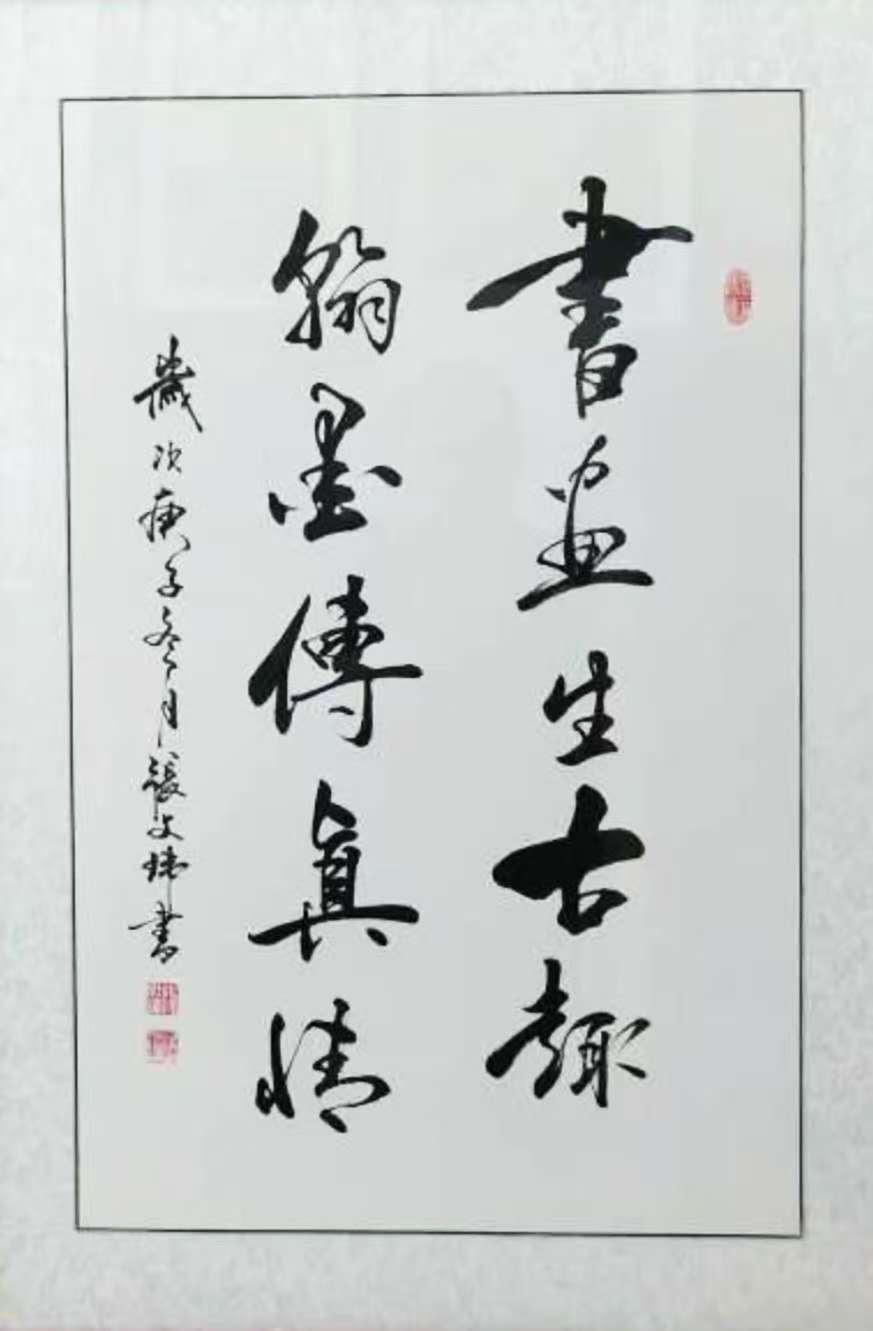 書画生古趣
翰墨傳真情
歲次庚子冬月張文瑋書